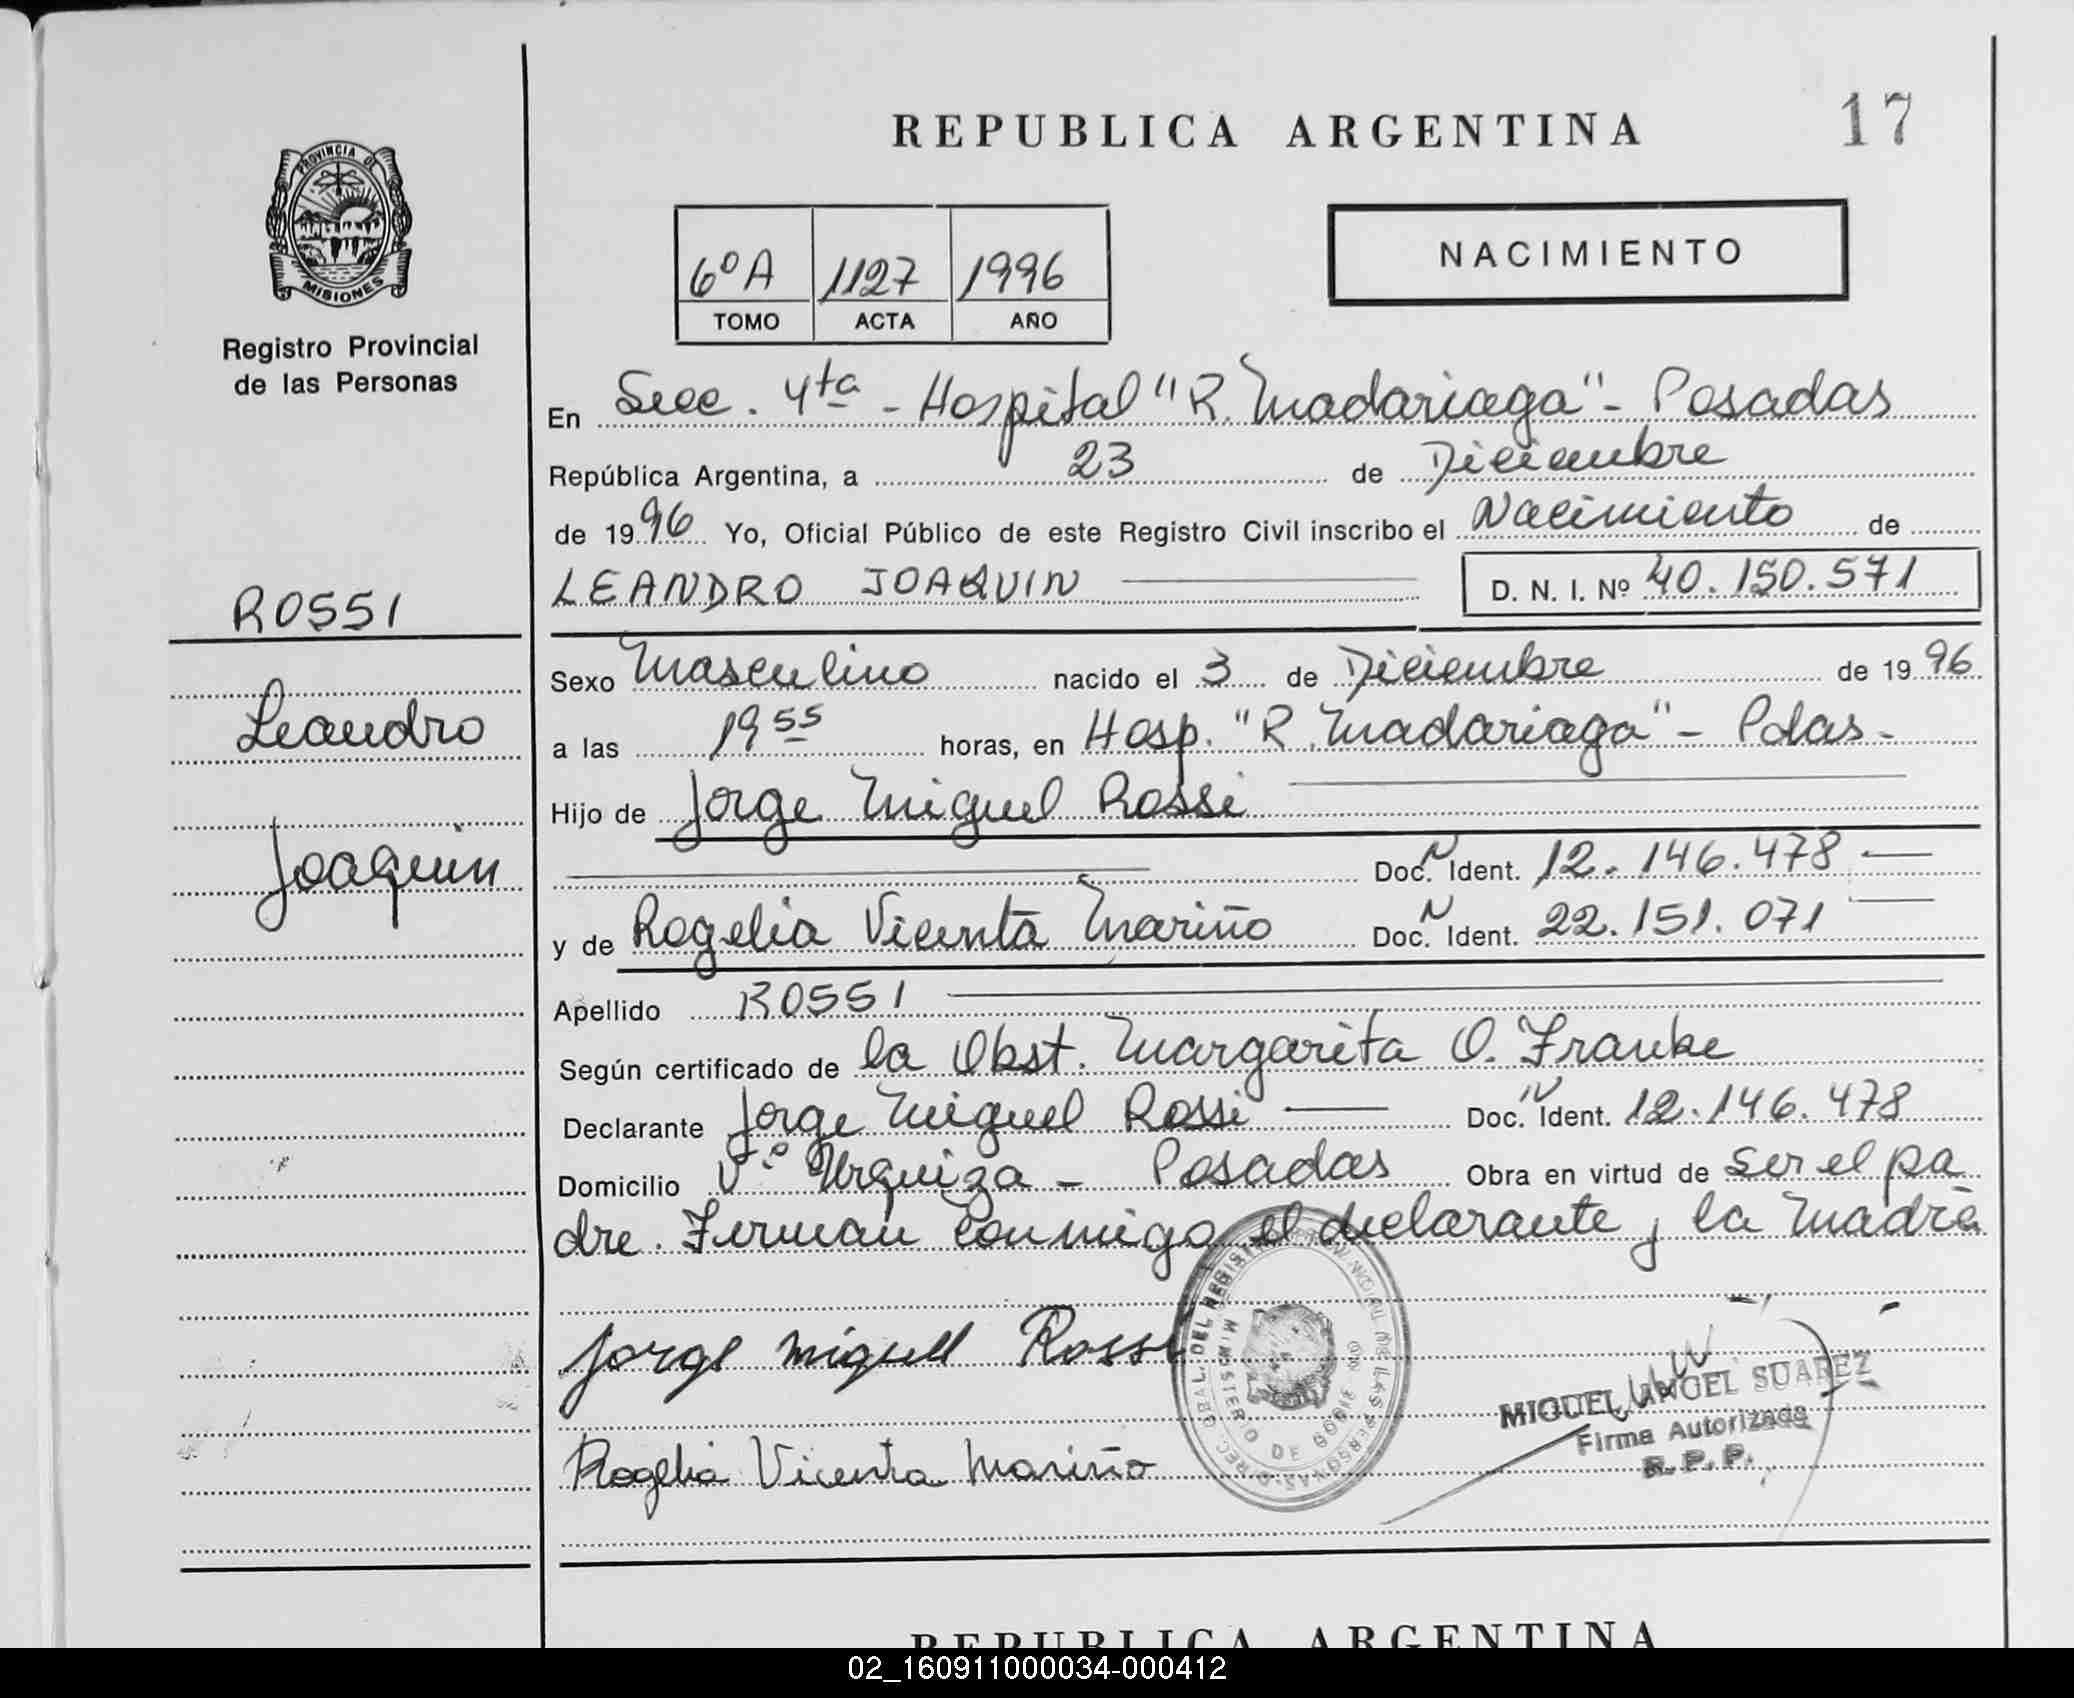 REPUBLICA ARGENTINA
17
PROVINCIA DE
MISIONES
Registro Provincial
de las Personas
6º A 1127 1996
TOMO ACTA AÑO
NACIMIENTO
En Secc. 4ta - Hospital "R. Madariaga" - Posadas
República Argentina, a 23 de Diciembre
de 1996 Yo, Oficial Público de este Registro Civil inscribo el Nacimiento de
LEANDRO JOAQUIN D. N. I. Nº 40.150.571
ROSSI
Leandro
Joaquin
Sexo Masculino nacido el 3 de Diciembre de 1996
a las 19 55 horas, en Hosp. "R. Madariaga" - Pdas -
Hijo de Jorge Miguel Rossi
Doc. N Ident. 12.146.478
y de Rogelia Vicenta Mariño Doc. N Ident. 22.151.071
Apellido ROSSI
Según certificado de la Obst. Margarita O. Franke
Declarante Jorge Miguel Rossi Doc. N Ident. 12.146.478
Domicilio Vº Urquiza - Posadas Obra en virtud de ser el pa
dre. Firman conmigo el declarante y la madre
Jorge miguel Rossi
Rogelia Vicenta Mariño
MIGUEL ANGEL SUAREZ
Firma Autorizada
R. P. P.
REPUBLICA ARGENTINA
02_160911000034-000412